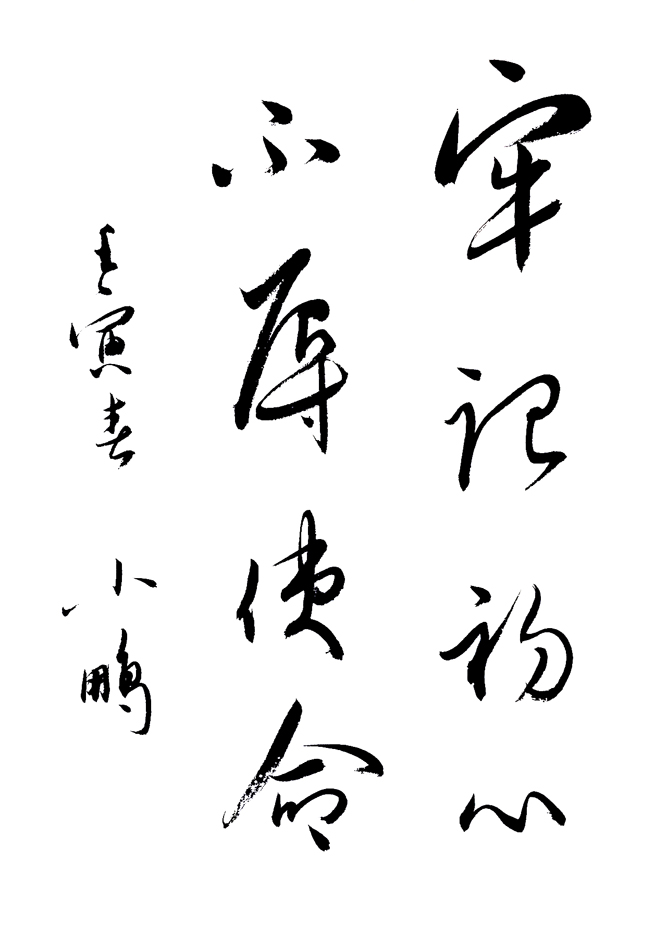 牢记初心
不辱使命
壬寅春 小鹏